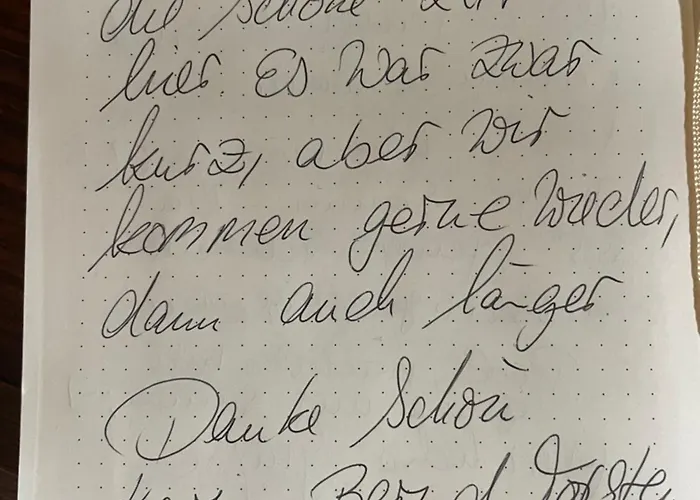 die schöne Zeit
hier. Es war zwar
kurz, aber wir
kommen gerne wieder,
dann auch länger
Danke schön
Bernd Torste